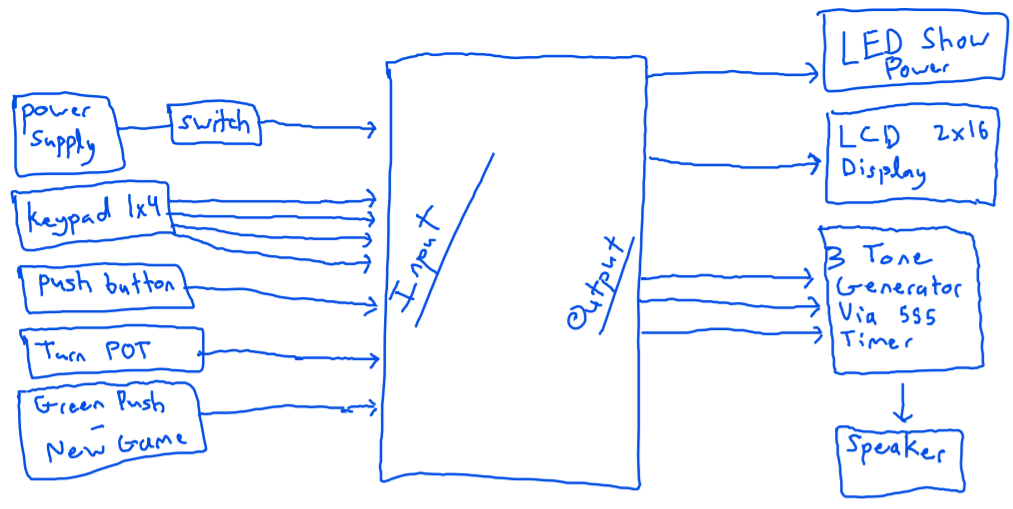 power
Supply
switch
Keypad 1x4
Push button
Turn POT
Green Push
-
New Game
Input
Output
LED Show
Power
LCD 2x16
Display
3 Tone
Generator
Via 555
Timer
Speaker